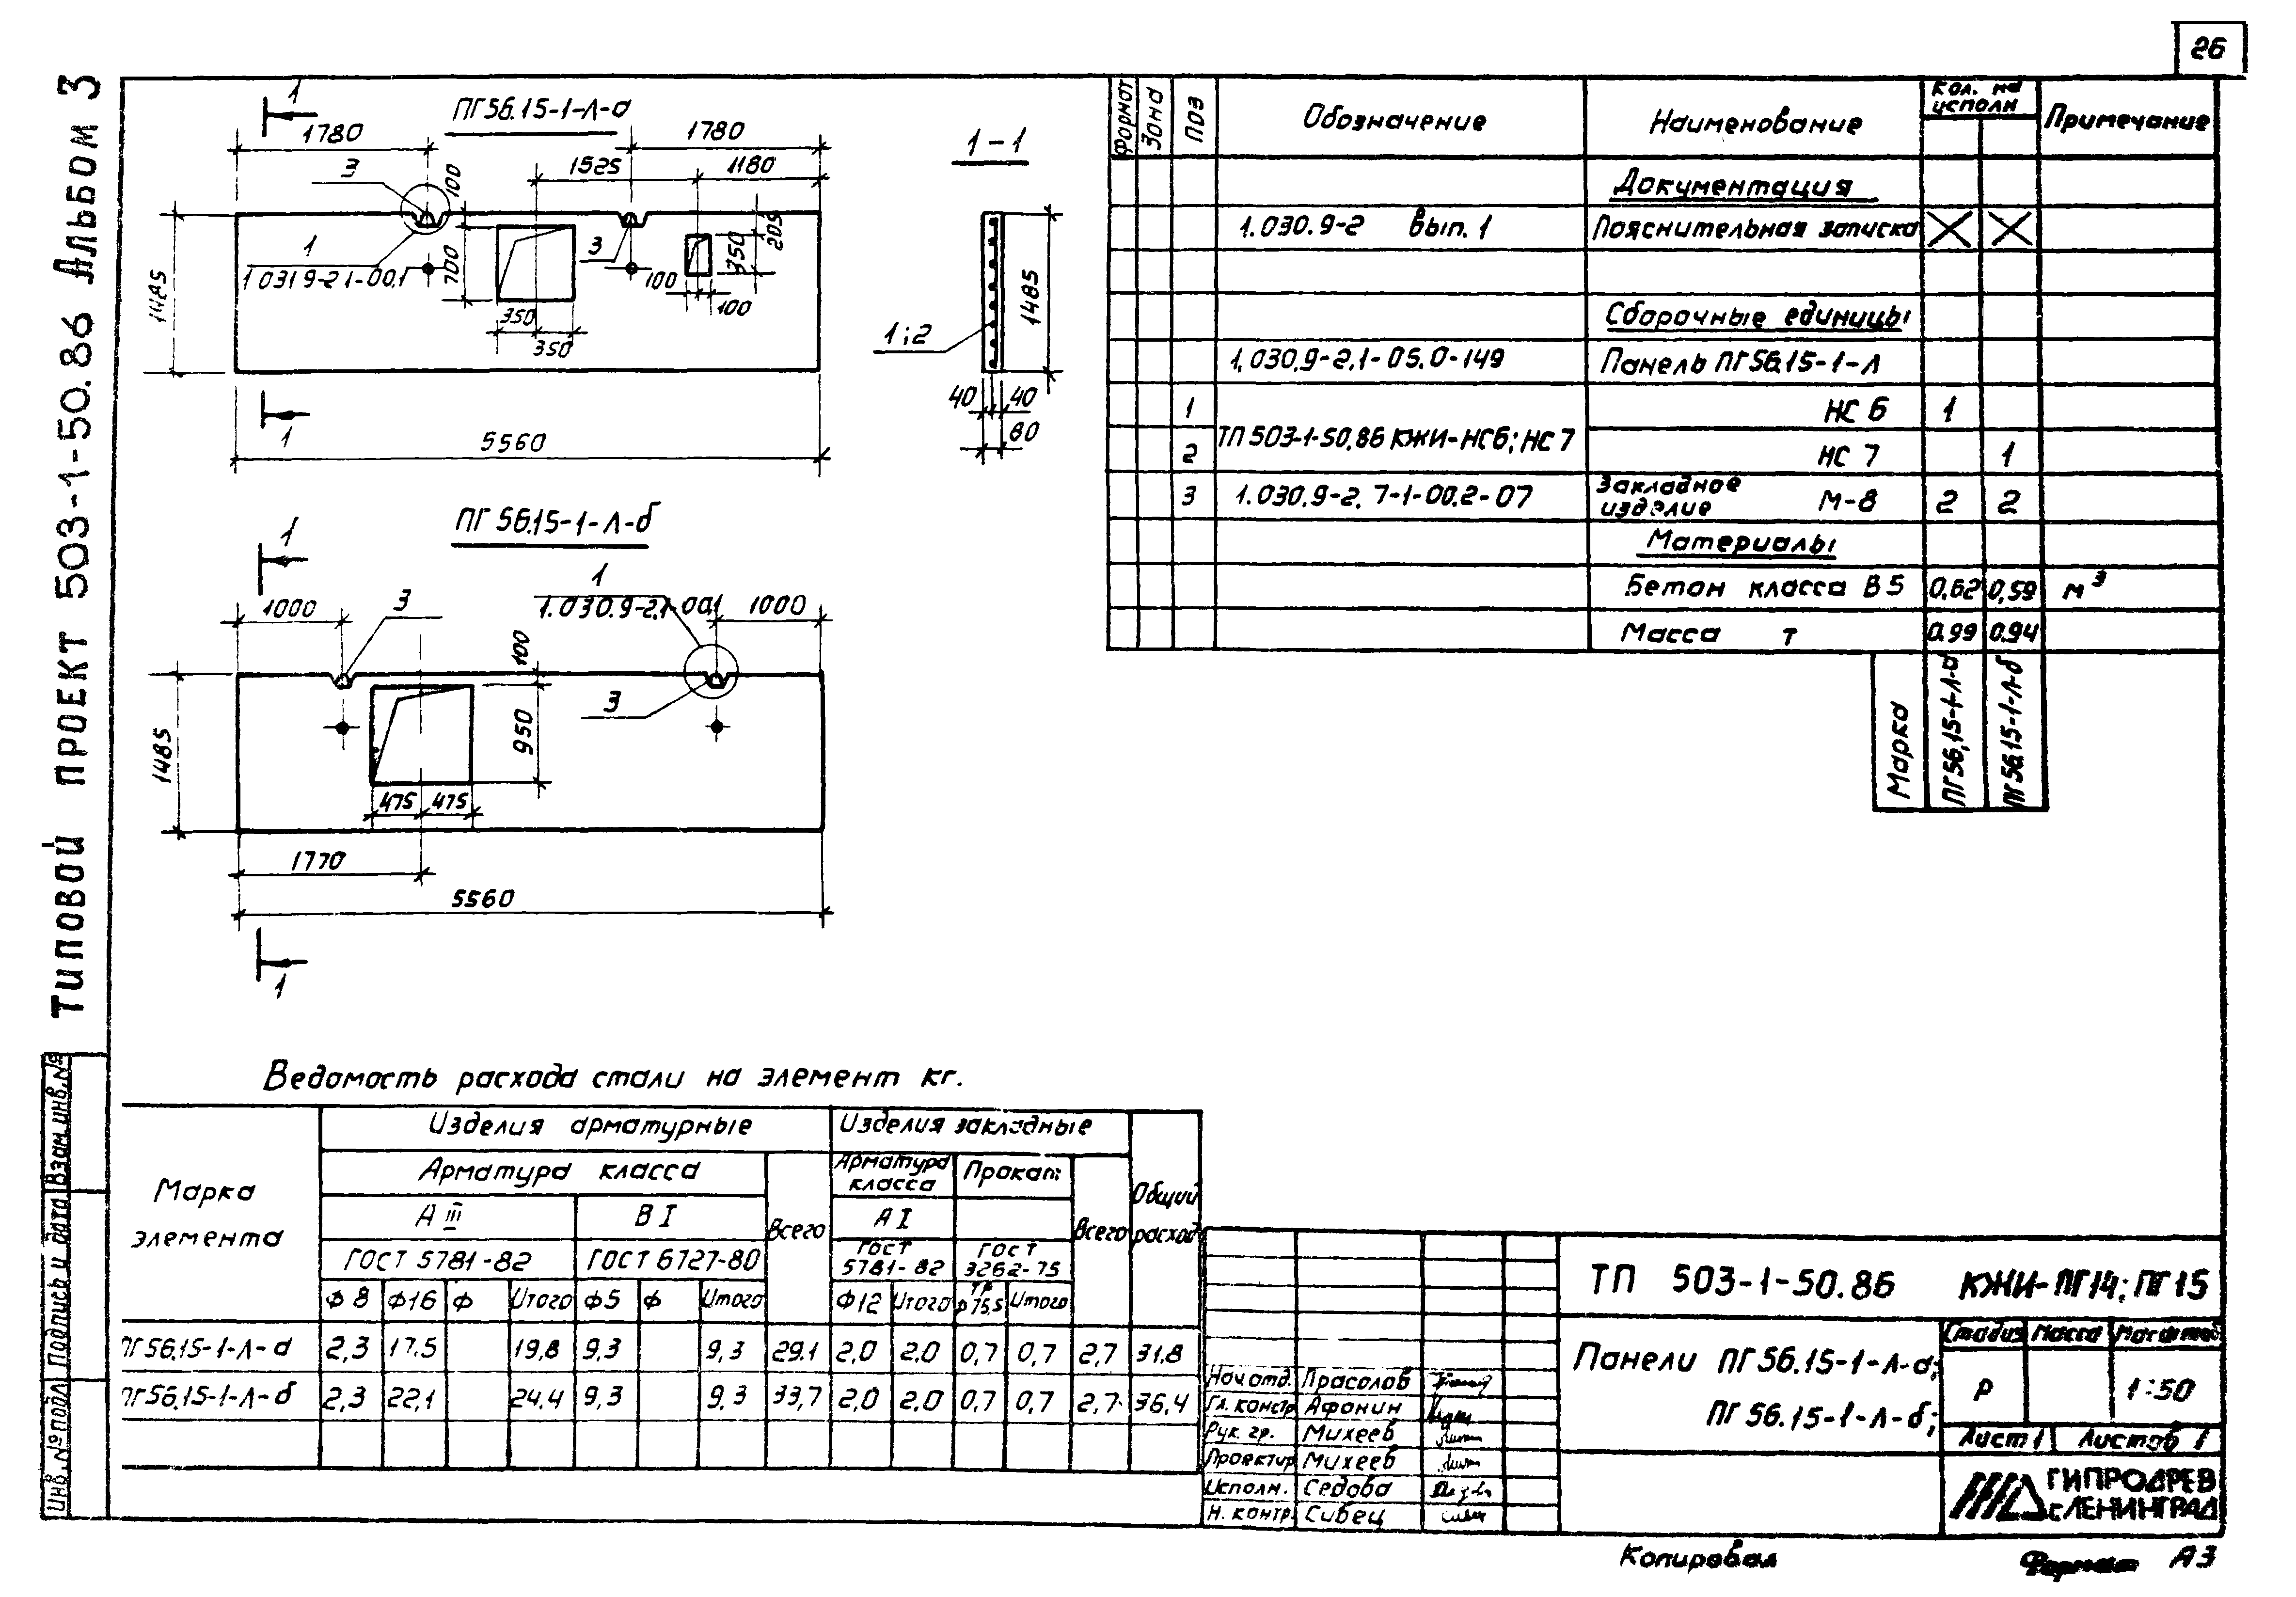 26
Типовой проект 503-1-50.86 Альбом 3
ПГ56.15-1-Л-а
1
1780
1780
3
100
1525
1180
1
1 031 9-2 1-00.1
3
700
350
205
100
100
350
350
1485
1
5560
1-1
1;2
1485
40 40
80
ПГ 56.15-1-Л-б
1
1000
3
1
1.030.9-2.1-00.1
1000
100
3
950
1485
475 475
1770
5560
1
Формат Зона Поз Обозначение Наименование Кол. на исполн Примечание
Документация
1.030.9-2 Вып. 1 Пояснительная записка
Сборочные единицы
1.030.9-2.1-05.0-149 Панель ПГ56.15-1-Л
1 НС 6 1
ТП 503-1-50.86 КЖИ-НС6; НС 7
2 НС 7 1
3 1.030.9-2. 7-1-00.2-07 Закладное изделие М-8 2 2
Материалы
Бетон класса В5 0,62 0,59 м³
Масса т 0.99 0.94
Марка ПГ56,15-1-Л-а ПГ56.15-1-Л-б
Ведомость расхода стали на элемент кг.
Марка элемента
Изделия арматурные Изделия закладные Общий расход
Арматура класса Всего Арматура класса Прокат Всего
А III В I А I
ГОСТ 5781-82 ГОСТ 6727-80 ГОСТ 5781-82 ГОСТ 3262-75
Ф 8 Ф16 Ф Итого Ф5 Ф Итого Ф12 Итого ТР Ф75,5 Итого
ПГ56.15-1-Л-а 2,3 17.5 19,8 9.3 9,3 29.1 2,0 2.0 0,7 0,7 2,7 31.8
ПГ56.15-1-Л-б 2,3 22,1 24,4 9,3 9,3 33,7 2,0 2,0 0,7 0,7 2,7 36,4
ТП 503-1-50.86 КЖИ-ПГ14; ПГ15
Панели ПГ56.15-1-Л-а;
ПГ56.15-1-Л-б;
Стадия Масса Масштаб
Р 1:50
Лист 1 Листов 1
Нач отд. Прасолов
Гл. констр Афонин
Рук. гр. Михеев
Проектир Михеев
Исполн. Седова
Н. контр. Сивец
ГИПРОДРЕВ
г.ЛЕНИНГРАД
Инв. № подл Подпись и дата Взам.инв.№
Копировал Формат А3